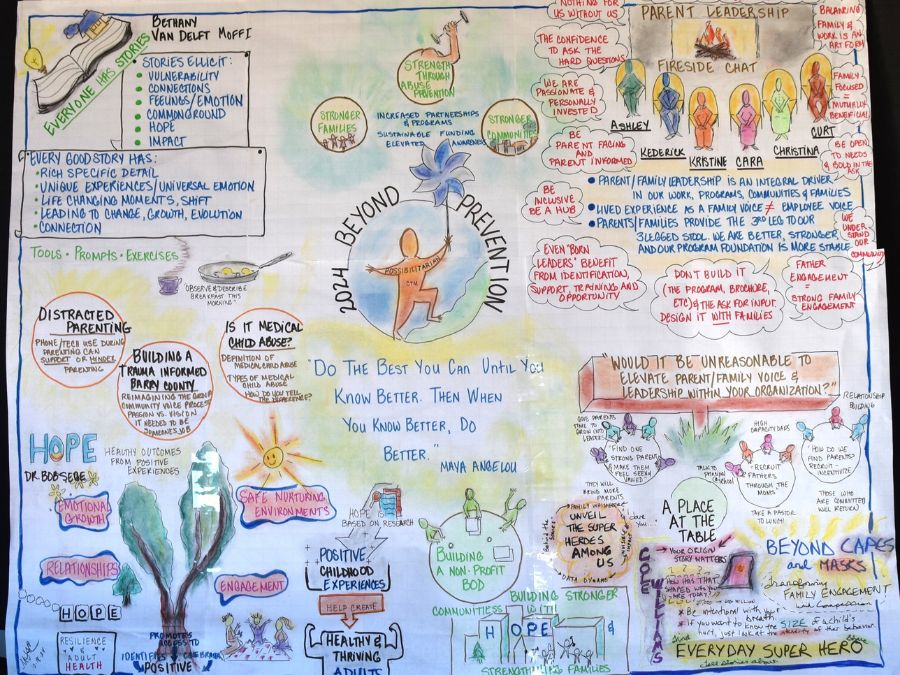 BETHANY
VAN DELFT MOFFI
EVERYONE HAS STORIES
STORIES ELLICIT:
• VULNERABILITY
• CONNECTIONS
• FEELINGS/EMOTION
• COMMONGROUND
• HOPE
• IMPACT
EVERY GOOD STORY HAS:
• RICH SPECIFIC DETAIL
• UNIQUE EXPERIENCES/UNIVERSAL EMOTION
• LIFE CHANGING MOMENTS, SHIFT
• LEADING TO CHANGE, GROWTH, EVOLUTION
• CONNECTION
TOOLS • PROMPTS • EXERCISES
OBSERVE & DESCRIBE
BREAKFAST THIS
MORNING"
STRENGTH
THROUGH
ABUSE
PREVENTION
STRONGER
FAMILIES
INCREASED PARTNERSHIPS
& PROGRAMS
SUSTAINABLE FUNDING
ELEVATED AWARENESS
STRONGER
COMMUNITIES
2024 BEYOND PREVENTION
POSSIBILITARIAN
NOTHING FOR
US WITHOUT US
THE CONFIDENCE
TO ASK THE
HARD QUESTIONS
WE ARE
PASSIONATE &
PERSONALLY
INVESTED
BE
PARENT FACING
AND
PARENT INFORMED
BE
INCLUSIVE
BE A HUB
EVEN "BORN
LEADERS" BENEFIT
FROM IDENTIFICATION,
SUPPORT, TRAINING AND
OPPORTUNITY
PARENT LEADERSHIP
FIRESIDE CHAT
ASHLEY
KEDERICK
KRISTINE
CARA
CHRISTINA
CURT
BALANCING
FAMILY &
WORK IS AN
ART FORM
FAMILY
FOCUSED
=
MUTUALLY
BENEFICIAL
BE OPEN
TO NEEDS
& BOLD IN THE
ASK
WE
UNDER
STAND
OUR
COMMUNITY
• PARENT/FAMILY LEADERSHIP IS AN INTEGRAL DRIVER
IN OUR WORK, PROGRAMS, COMMUNITIES & FAMILIES
• LIVED EXPERIENCE AS A FAMILY VOICE ≠ EMPLOYEE VOICE
• PARENTS/FAMILIES PROVIDE THE 3RD LEG TO OUR
3 LEGGED STOOL. WE ARE BETTER, STRONGER
AND OUR PROGRAM FOUNDATION IS MORE STABLE.
DON'T BUILD IT
(THE PROGRAM, BROCHURE,
ETC) & THE ASK FOR INPUT.
DESIGN IT WITH FAMILIES
FATHER
ENGAGEMENT
=
STRONG FAMILY
ENGAGEMENT
DISTRACTED
PARENTING
PHONE/TECH USE DURING
PARENTING CAN
SUPPORT OR HINDER
PARENTING
BUILDING A
TRAUMA INFORMED
BARRY COUNTY
REIMAGINING THE GROUP
COMMUNITY VOICE PROCESS
PASSION VS. VISION
IT NEEDED TO BE
SOMEONE'S JOB
IS IT MEDICAL
CHILD ABUSE?
DEFINITION OF
MEDICAL CHILD ABUSE
TYPES OF MEDICAL
CHILD ABUSE
HOW DO YOU TELL
THE DIFFERENCE?
"DO THE BEST YOU CAN UNTIL YOU
KNOW BETTER. THEN WHEN
YOU KNOW BETTER, DO
BETTER."
MAYA ANGELOU
"WOULD IT BE UNREASONABLE TO
ELEVATE PARENT/FAMILY VOICE &
LEADERSHIP WITHIN YOUR ORGANIZATION?"
RELATIONSHIP
BUILDING
GIVE PARENTS
TIME TO
GROW INTO
LEADERS
"FIND ONE
STRONG PARENT
& MAKE THEM
FEEL SEEN
THEY WILL
BRING MORE
PARENTS
HIGH
CAPACITY DADS
"RECRUIT
FATHER'S
THROUGH THE
MOMS
TAKE A PASTOR
TO LUNCH!
"HOW DO WE
FIND PARENTS?
RECRUIT-
INCENTIVIZE
THOSE WHO
ARE COMMITTED
WILL RETURN
A PLACE
AT THE
TABLE
HOPE
DR. BOB SEGE
HEALTHY OUTCOMES
FROM POSITIVE
EXPERIENCES
EMOTIONAL
GROWTH
SAFE NURTURING
ENVIRONMENTS
RELATIONSHIPS
ENGAGEMENT
HOPE
RESILIENCE
&
ADULT
HEALTH
PROMOTES
ACCESS TO
POSITIVE
HOPE
BASED ON RESEARCH
POSITIVE
CHILDHOOD
EXPERIENCES
HELP CREATE
HEALTHY &
THRIVING
ADULTS
BUILDING
A NON-PROFIT
BOD
UNVEIL
THE SUPER
HEROES
AMONG
US
DATA DYNAMO
BUILDING STRONGER
COMMUNITIES WITH
HOPE
STRENGTHENING FAMILIES
COLE WILLIAMS
YOUR ORIGIN
STORY MATTERS
HOW HAS THAT
SHAPED WHO YOU
ARE TODAY?
* Be intentional with your
breath
* If you want to know the SIZE of a child's
hurt, just look at the intensity of their behavior.
BEYOND CAPES
and MASKS
transforming
FAMILY ENGAGEMENT
with Compassion
EVERYDAY SUPER HERO
tell stories about